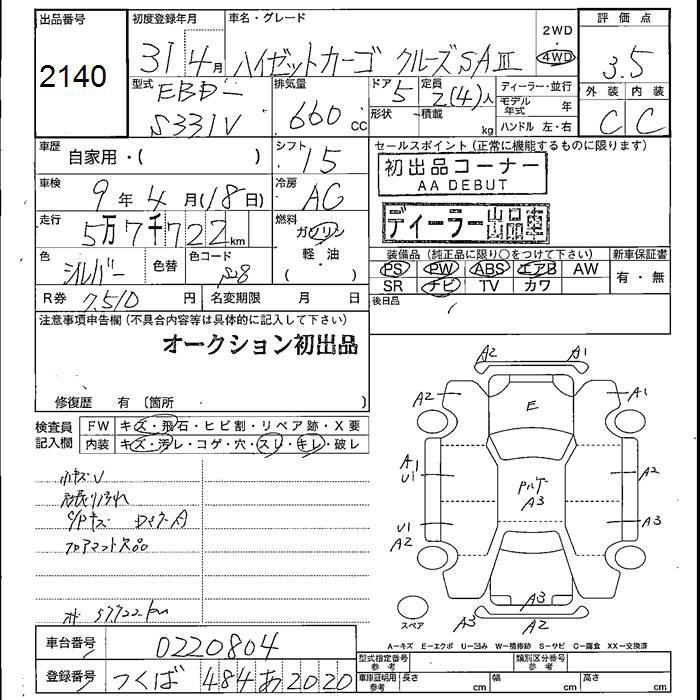 出品番号
2140
初度登録年月
31 4月
車名・グレード
ハイゼットカーゴ クルーズSAⅢ
2WD
・
4WD
評価点
3.5
外装 内装
C C
型式
EBD-
S331V
排気量
660 cc
ドア
5
形状
定員
2(4)人
積載
kg
ディーラー・並行
モデル年式 年
ハンドル 左・右
車歴
自家用・( )
シフト
I5
セールスポイント(正常に機能するものに限ります)
初出品コーナー
AA DEBUT
ディーラー出品車
車検
9年4月(18日)
冷房
AC
走行
5万7千722km
燃料
ガソリン
軽・油
( )
色
シルバー
色替
色コード
S28
装備品(純正品に限り○をつけて下さい)
PS PW ABS エアB AW
SR ナビ TV カワ
新車保証書
有・無
R券 7,510 円
名変期限 月 日
後日品
注意事項申告欄(不具合内容等は具体的に記入して下さい)
オークション初出品
修復歴 有〔箇所 〕
検査員
記入欄
FW キズ・飛石・ヒビ割・リペア跡・X要
内装 キズ・汚レ・コゲ・穴・スレ・キレ・破レ
小キズU
C/Pキズ
フロアマット欠品
57722km
A2 A1
A2 A1
E
A1
U1
A2
Pルーフ
A3
U1
A2
A3
A3
A3 A2
スペア
A-キズ E-エクボ U-凹み W-補修跡 S-サビ C-腐食 XX-交換済
車台番号
0220804
登録番号
つくば 484 あ 2020
型式指定番号
参考
類別区分番号
参考
車庫証明用
参考
長さ cm 幅 cm 高さ cm